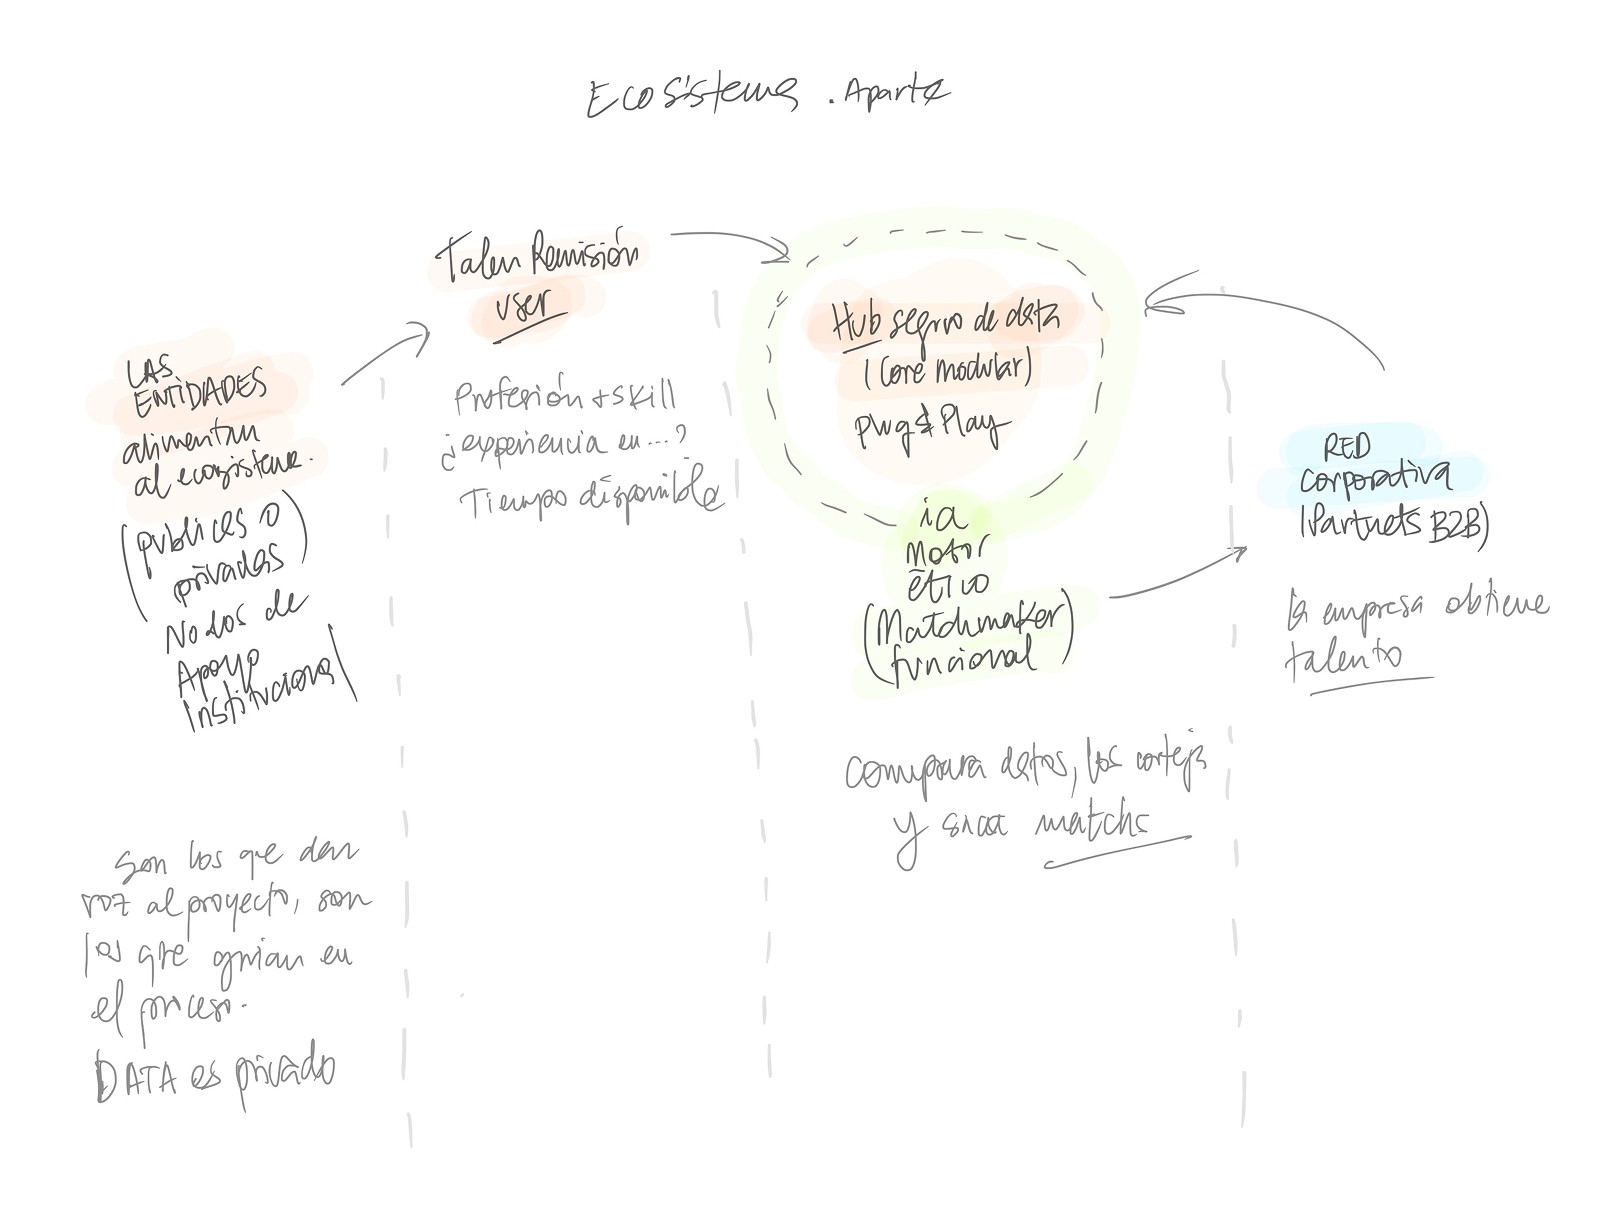 Ecosistema . Aparte
LAS
ENTIDADES
alimentan
al ecosistema.
(publicas o
privadas)
Nodos de
Apoyo
Institucional)
Son los que dan
voz al proyecto, son
los que guian en
el proceso.
DATA es privado
Talen Remisión
user
Profesión + skill
¿experiencia en...?
Tiempo disponible
Hub seguro de data
(Core modular)
Plug & Play
ia
Motor
ético
(Matchmaker
funcional)
Compara datos, los
y matchs
RED
Corporativa
(Partners B2B)
la empresa obtiene
talento